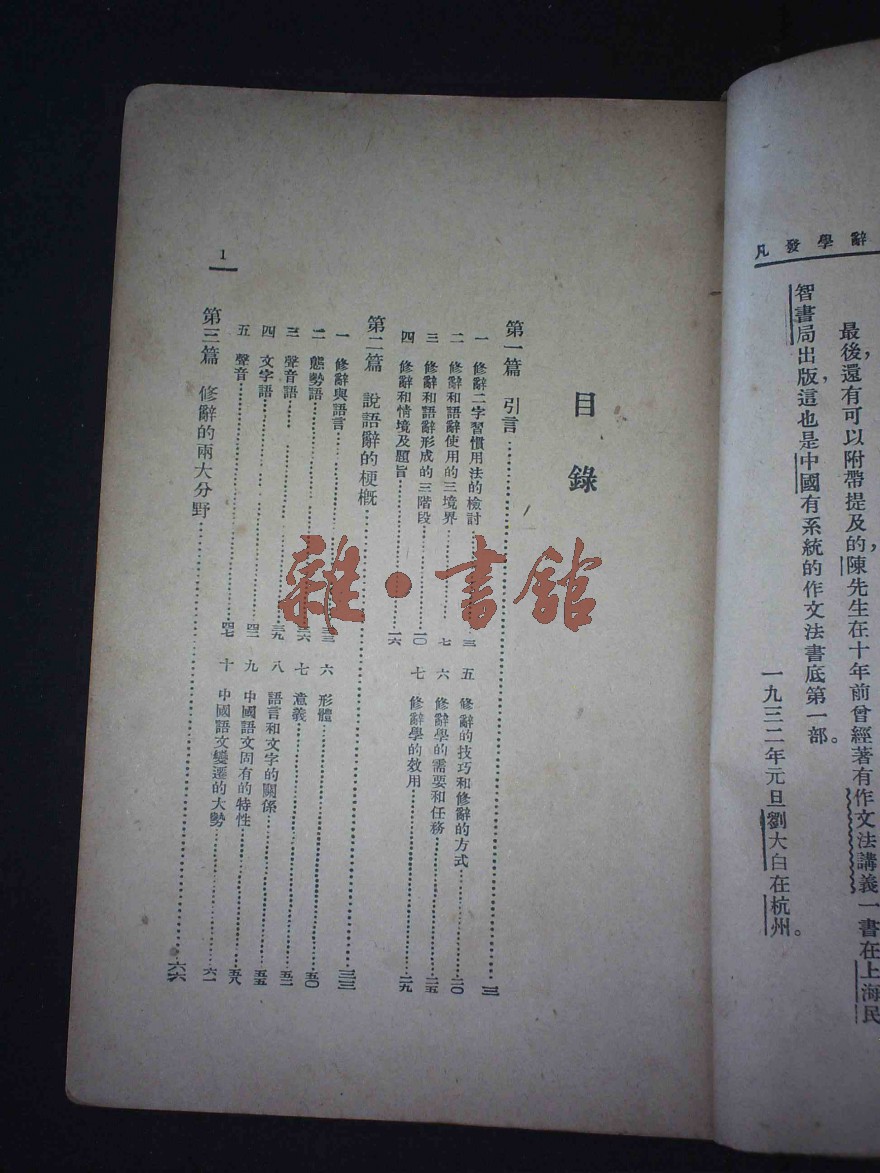 辭學發凡
最後,還有可以附帶提及的,陳先生在十年前曾經著有作文法講義一書在上海民
智書局出版,這也是中國有系統的作文法書底第一部。
一九三二年元旦劉大白在杭州。
目錄
第一篇 引言……三
一 修辭二字習慣用法的檢討……三
二 修辭和語辭使用的三境界……七
三 修辭和語辭形成的三階段……一〇
四 修辭和情境及題旨……一六
五 修辭的技巧和修辭的方式……二〇
六 修辭學的需要和任務……二五
七 修辭學的效用……二九
第二篇 說語辭的梗概……三三
一 修辭與語言……三三
二 態勢語……三六
三 聲音語……三九
四 文字語……四二
五 聲音……四七
六 形體……五〇
七 意義……五二
八 語言和文字的關係……五五
九 中國語文固有的特性……五八
十 中國語文變遷的大勢……六一
第三篇 修辭的兩大分野……六六
1
雜·書館